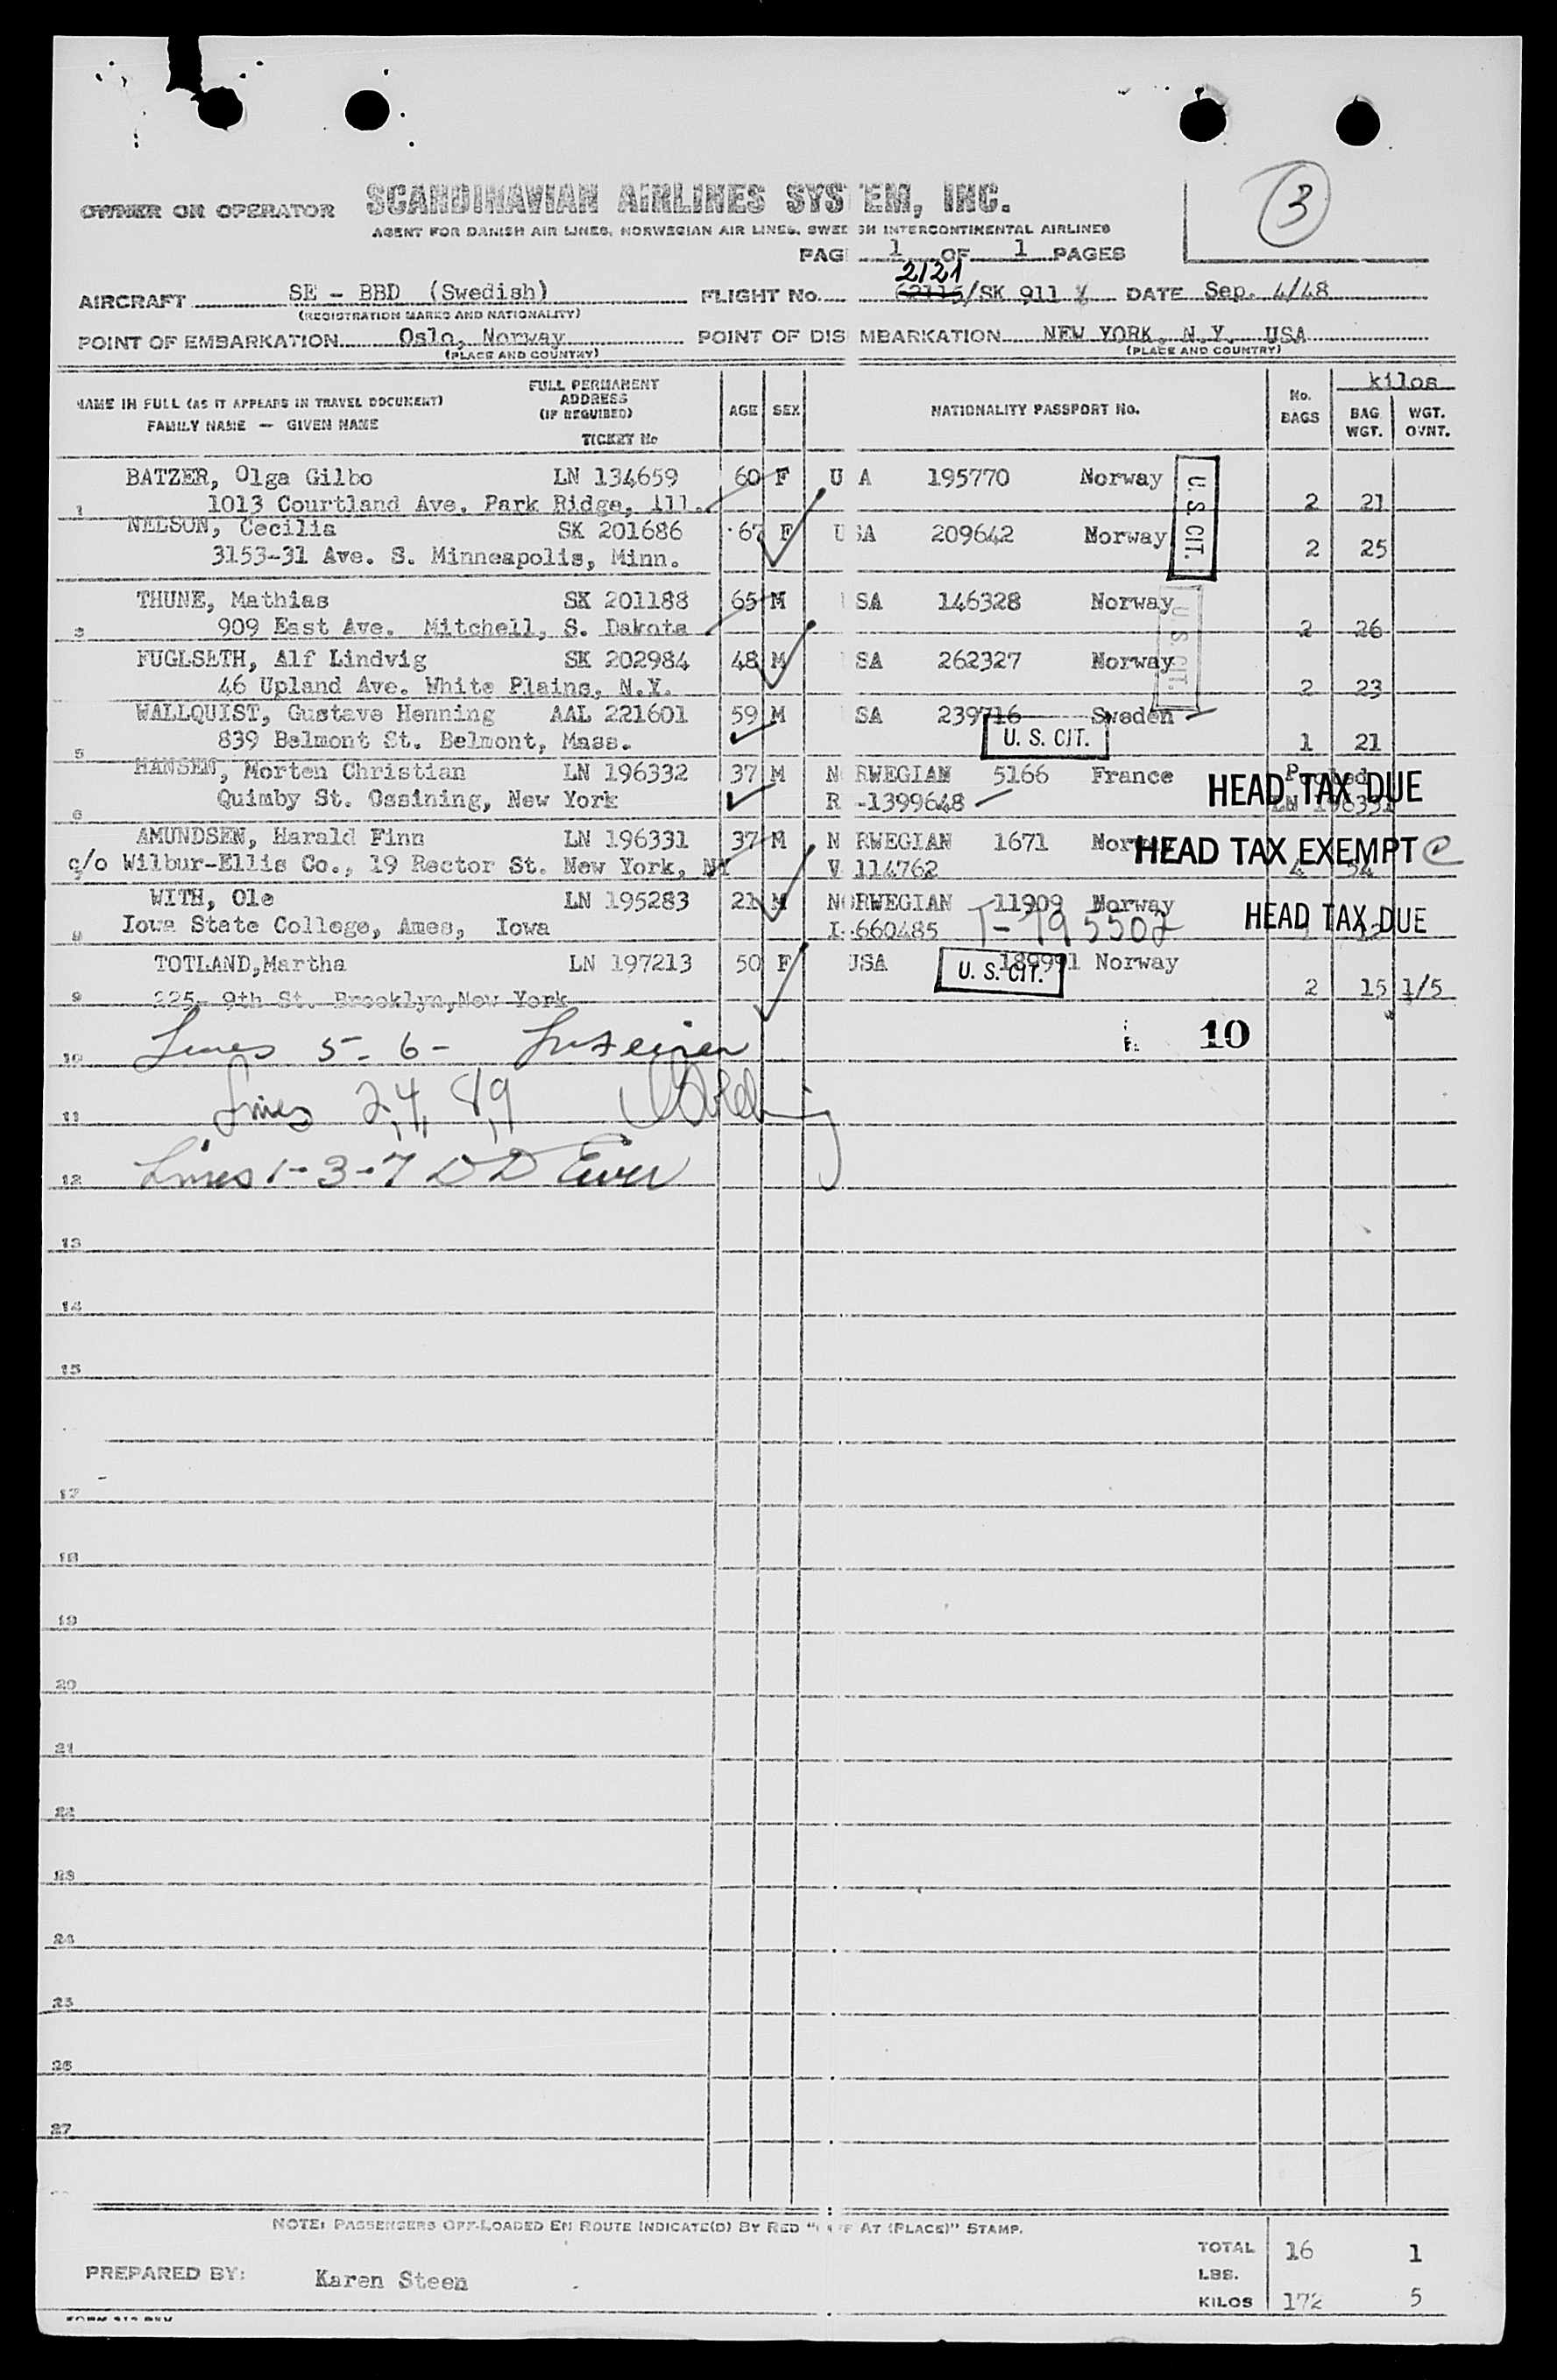 3
OWNER OR OPERATOR SCANDINAVIAN AIRLINES SYS EM, INC.
AGENT FOR DANISH AIR LINES, NORWEGIAN AIR LINES, SWED SH INTERCONTINENTAL AIRLINES
PAG 1 OF 1 PAGES
2121
AIRCRAFT SE - BBD (Swedish) FLIGHT No. /SK 911 DATE Sep. 4/48
(REGISTRATION MARKS AND NATIONALITY)
POINT OF EMBARKATION Oslo, Norway POINT OF DIS MBARKATION NEW YORK, N.Y. USA
(PLACE AND COUNTRY) (PLACE AND COUNTRY)
NAME IN FULL (AS IT APPEARS IN TRAVEL DOCUMENT) FULL PERMANENT ADDRESS (IF REQUIRED) AGE SEX NATIONALITY PASSPORT No. No. BAGS kilos
FAMILY NAME — GIVEN NAME TICKET No BAG WGT. WGT. OVNT.
BATZER, Olga Gilbo LN 134659 60 F U A 195770 Norway U.S. CIT.
1 1013 Courtland Ave. Park Ridge, ill. 2 21
NELSON, Cecilia SK 201686 67 F U SA 209642 Norway
3153-31 Ave. S. Minneapolis, Minn. 2 25
THUNE, Mathias SK 201188 65 M SA 146328 Norway U.S. CIT.
3 909 East Ave. Mitchell, S. Dakota 2 26
FUGLSETH, Alf Lindvig SK 202984 48 M SA 262327 Norway
46 Upland Ave. White Plains, N.Y. 2 23
WALLQUIST, Gustave Henning AAL 221601 59 M SA 239716 Sweden
5 839 Belmont St. Belmont, Mass. U. S. CIT. 1 21
HANSEN, Morten Christian LN 196332 37 M N RWEGIAN 5166 France HEAD TAX DUE Pooled
6 Quimby St. Ossining, New York R -1399648 LN 196331
AMUNDSEN, Harald Finn LN 196331 37 M N RWEGIAN 1671 Norway HEAD TAX EXEMPT
c/o Wilbur-Ellis Co., 19 Rector St. New York, NY V 114762 4
WITH, Ole LN 195283 21 M NORWEGIAN 11909 Norway HEAD TAX DUE
Iowa State College, Ames, Iowa I- 660485 T-795502
TOTLAND,Martha LN 197213 50 F USA 189991 Norway U. S. CIT.
9 225- 9th St. Brooklyn,New York 2 15 1/5
10 Lines 5-6- 10
11 Lines 2,4,8,9
12 Lines 1-3-7
13
14
15
17
18
19
20
21
22
23
24
25
26
27
NOTE: PASSENGERS OFF-LOADED EN ROUTE INDICATE(D) BY RED " AT (PLACE)" STAMP.
TOTAL 16 1
LBS.
PREPARED BY: Karen Steen
KILOS 172 5